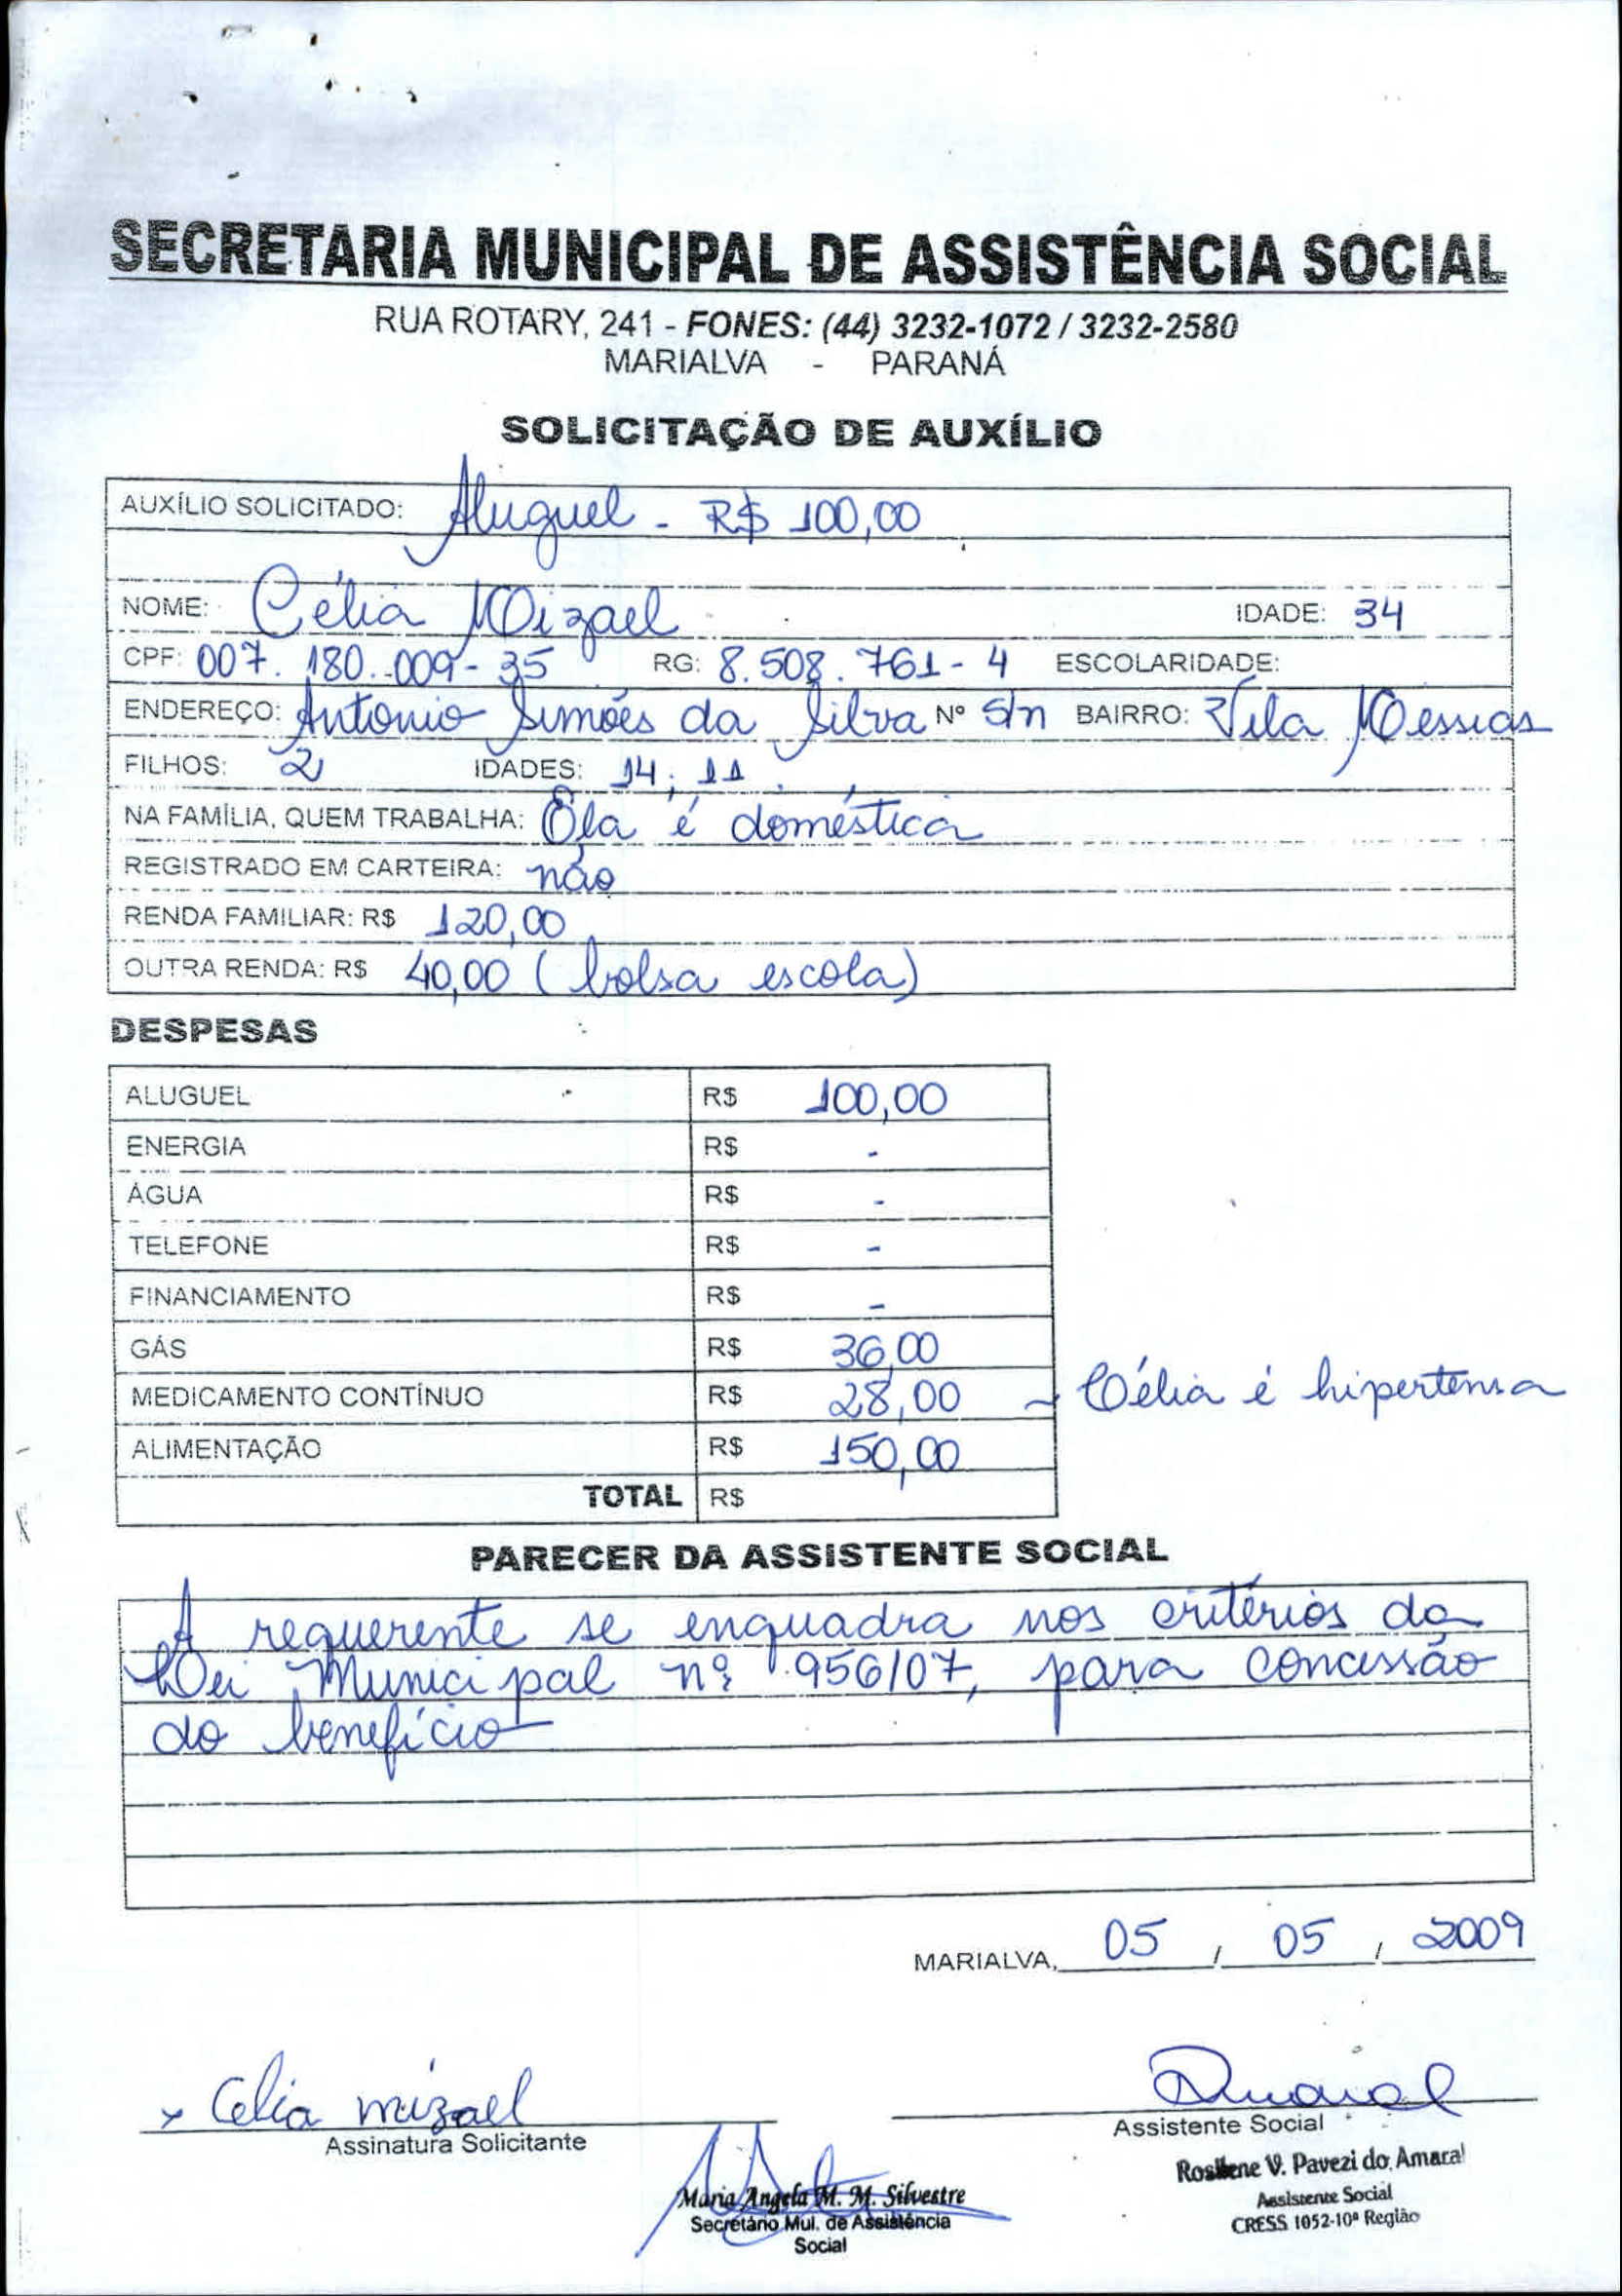 SECRETARIA MUNICIPAL DE ASSISTÊNCIA SOCIAL
RUA ROTARY, 241 - FONES: (44) 3232-1072 / 3232-2580
MARIALVA - PARANÁ
SOLICITAÇÃO DE AUXÍLIO
AUXÍLIO SOLICITADO: Aluguel - R$ 100,00
NOME: Célia Mizael IDADE: 34
CPF: 007.180.009-35 RG: 8.508.761-4 ESCOLARIDADE:
ENDEREÇO: Antonio Simões da Silva Nº S/n BAIRRO: Vila Messias
FILHOS: 2 IDADES: 14; 11
NA FAMÍLIA, QUEM TRABALHA: Ela é doméstica
REGISTRADO EM CARTEIRA: não
RENDA FAMILIAR: R$ 120,00
OUTRA RENDA: R$ 40,00 (bolsa escola)
DESPESAS
ALUGUEL R$ 100,00
ENERGIA R$ -
ÁGUA R$ -
TELEFONE R$ -
FINANCIAMENTO R$ -
GÁS R$ 36,00
MEDICAMENTO CONTÍNUO R$ 28,00 - Célia é hipertensa
ALIMENTAÇÃO R$ 150,00
TOTAL R$
PARECER DA ASSISTENTE SOCIAL
A requerente se enquadra nos critérios da
Lei Municipal nº 956/07, para concessão
do benefício
MARIALVA, 05 / 05 / 2009
x Celia mizael
Assinatura Solicitante
Assistente Social
Rosilene V. Pavezi do Amaral
Assistente Social
CRESS 1052-10ª Região
Maria Angela M. M. Silvestre
Secretário Mul. de Assistência
Social